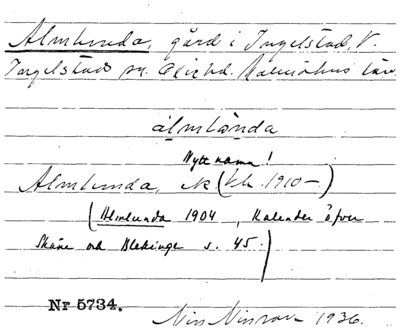 Almlunda, gård i Ingelstad, V.
Ingelstad sn. Oxie hd. Malmöhus län.
álmlǝnda
Nytt namn!
Almlunda, (1910–)
(Almlunda 1904, Kalender öfver
Skåne och Blekinge s. 45.)
Nr 5734.
Nils Nilsson 1936.